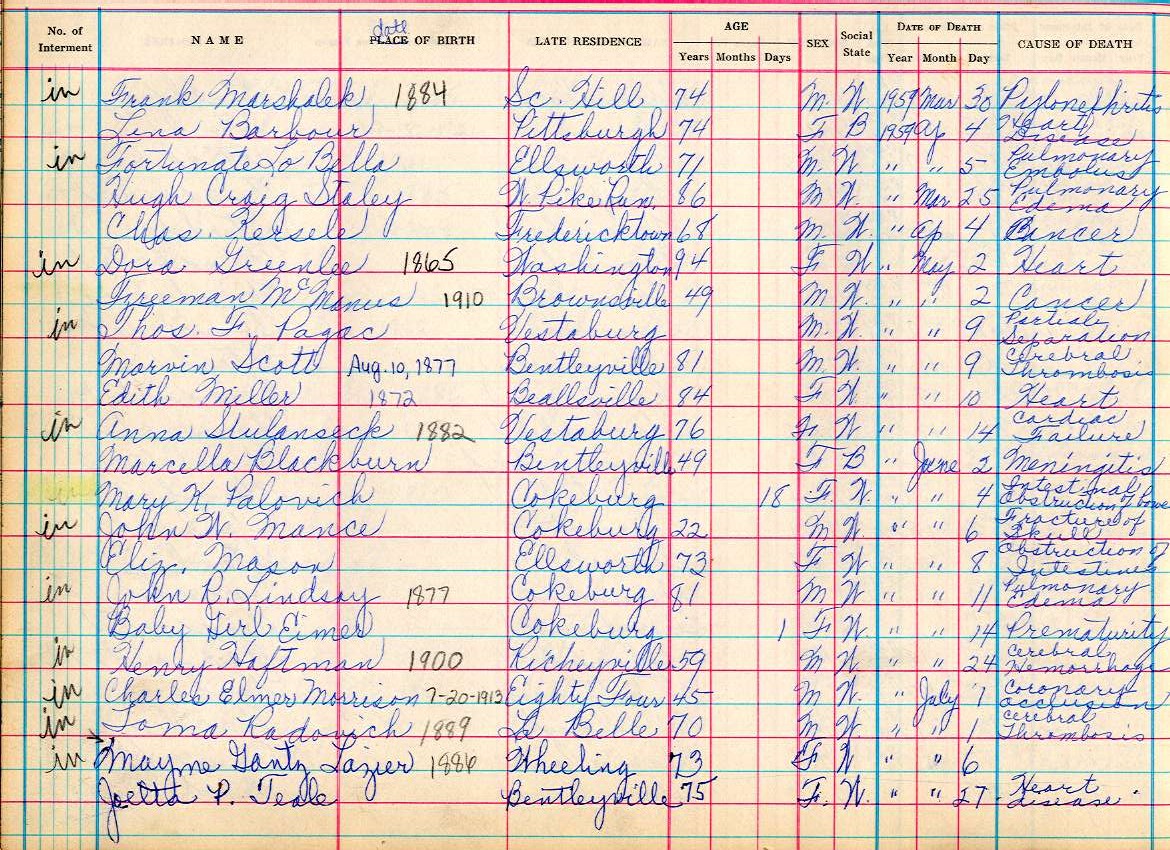 No. of Interment NAME date PLACE OF BIRTH LATE RESIDENCE AGE Years Months Days SEX Social State DATE OF DEATH Year Month Day CAUSE OF DEATH
in Frank Marshalek 1884 Sc. Hill 74 M. W. 1959 Mar 30 Pylonefhritis
Lena Barbour Pittsburgh 74 F B 1959 Ap 4 Heart Disease
in Fortunate Lo Bella Ellsworth 71 M. W. " " 5 Pulmonary Embolus
Hugh Craig Staley W. Pike Run. 86 M W. " Mar 25 Pulmonary Edema
Chas. Kersele Fredericktown 68 M. W. " Ap 4 Cancer
in Dora Greenlee 1865 Washington 94 F W " May 2 Heart
Freeman McManus 1910 Brownsville 49 M W. " " 2 Cancer
in Thos. F. Pagac Vestaburg M. W. " " 9 Separation
Marvin Scott Aug. 10, 1877 Bentleyville 81 M. W. " " 9 Cerebral Thrombosis
Edith Miller 1872 Beallsville 84 F W " " 10 Heart
in Anna 1882 Vestaburg 76 F W " " 14 Cardiac Failure
Marcella Blackburn Bentleyville 49 F B " June 2 Meningitis
in Mary K. Palovich Cokeburg 18 F W. " " 4 Intestinal Obstruction of bowe
in John W. Mance Cokeburg 22 M W " " 6 Fracture of Skull
Eliz. Mason Ellsworth 73 F W " " 8 Obstruction of Intestines
in John R. Lindsay 1877 Cokeburg 81 M W " " 11 Pulmonary Edema
Baby Girl Eimer Cokeburg 1 F W. " " 14 Prematurity
in Henry Haftman 1900 Richeyville 59 M W. " " 24 Cerebral Hemorrhage
in Charles Elmer Morrison 7-20-1913 Eighty Four 45 M W. " July 1 Coronary Occlusion
in Toma Radovich 1889 La Belle 70 M W. " " 1 Cerebral Thrombosis
in Mayme Gantz Lazier 1886 Wheeling 73 F W " " 6
Joetta P. Teale Bentleyville 75 F. W. " " 27 Heart disease